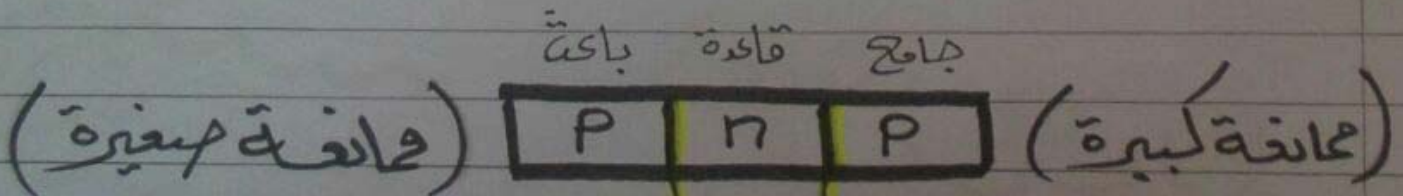 جامع قاعدة باعث
(ممانعة كبيرة) P n P (ممانعة صغيرة)